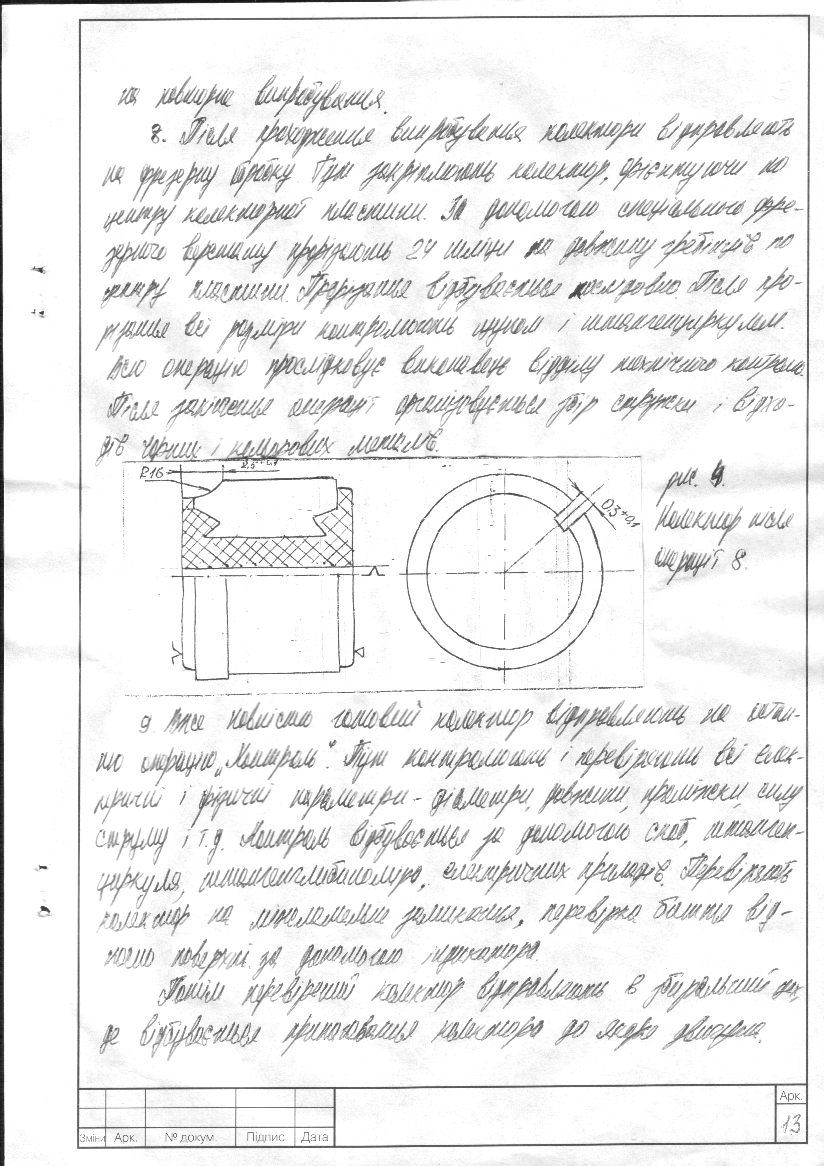 на повторне випробування.
8. Після проходження випробування колектори відправляють
на фрезерну обробку. Тут закріплюють колектор, орієнтуючи по
центру колекторної пластини. За допомогою спеціального фре-
зерного верстату прорізають 24 шліци на довжину гребінців по
центру пластини. Прорізання відбувається послідовно. Після про-
різання всі розміри контролюють щупом і штангенциркулем.
Всю операцію прослідковує виконавець відділу технічного контролю.
Після закінчення операції організовується збір стружки і відхо-
дів чорних і кольорових металів.
R16
2,5+0,1
0,3+0,1
рис. 9.
Колектор після
операції 8.
9. Вже повністю готовий колектор відправляють на остан-
ню операцію „Контроль". Тут контролюють і перевіряють всі елек-
тричні і фізичні параметри - діаметри, довжини, проміжки, силу
струму і т.д. Контроль відбувається за допомогою скоб, штанген-
циркуля, штангенглибиноміра, електричних приладів. Перевіряють
колектор на міжламельне замикання, перевірка биття від-
носно поверхні за допомогою індикатора.
Потім перевірений колектор відправляють в збиральний цех,
де відбувається припаювання колектора до якоря двигуна.
Зміни Арк. № докум. Підпис Дата
Арк.
13